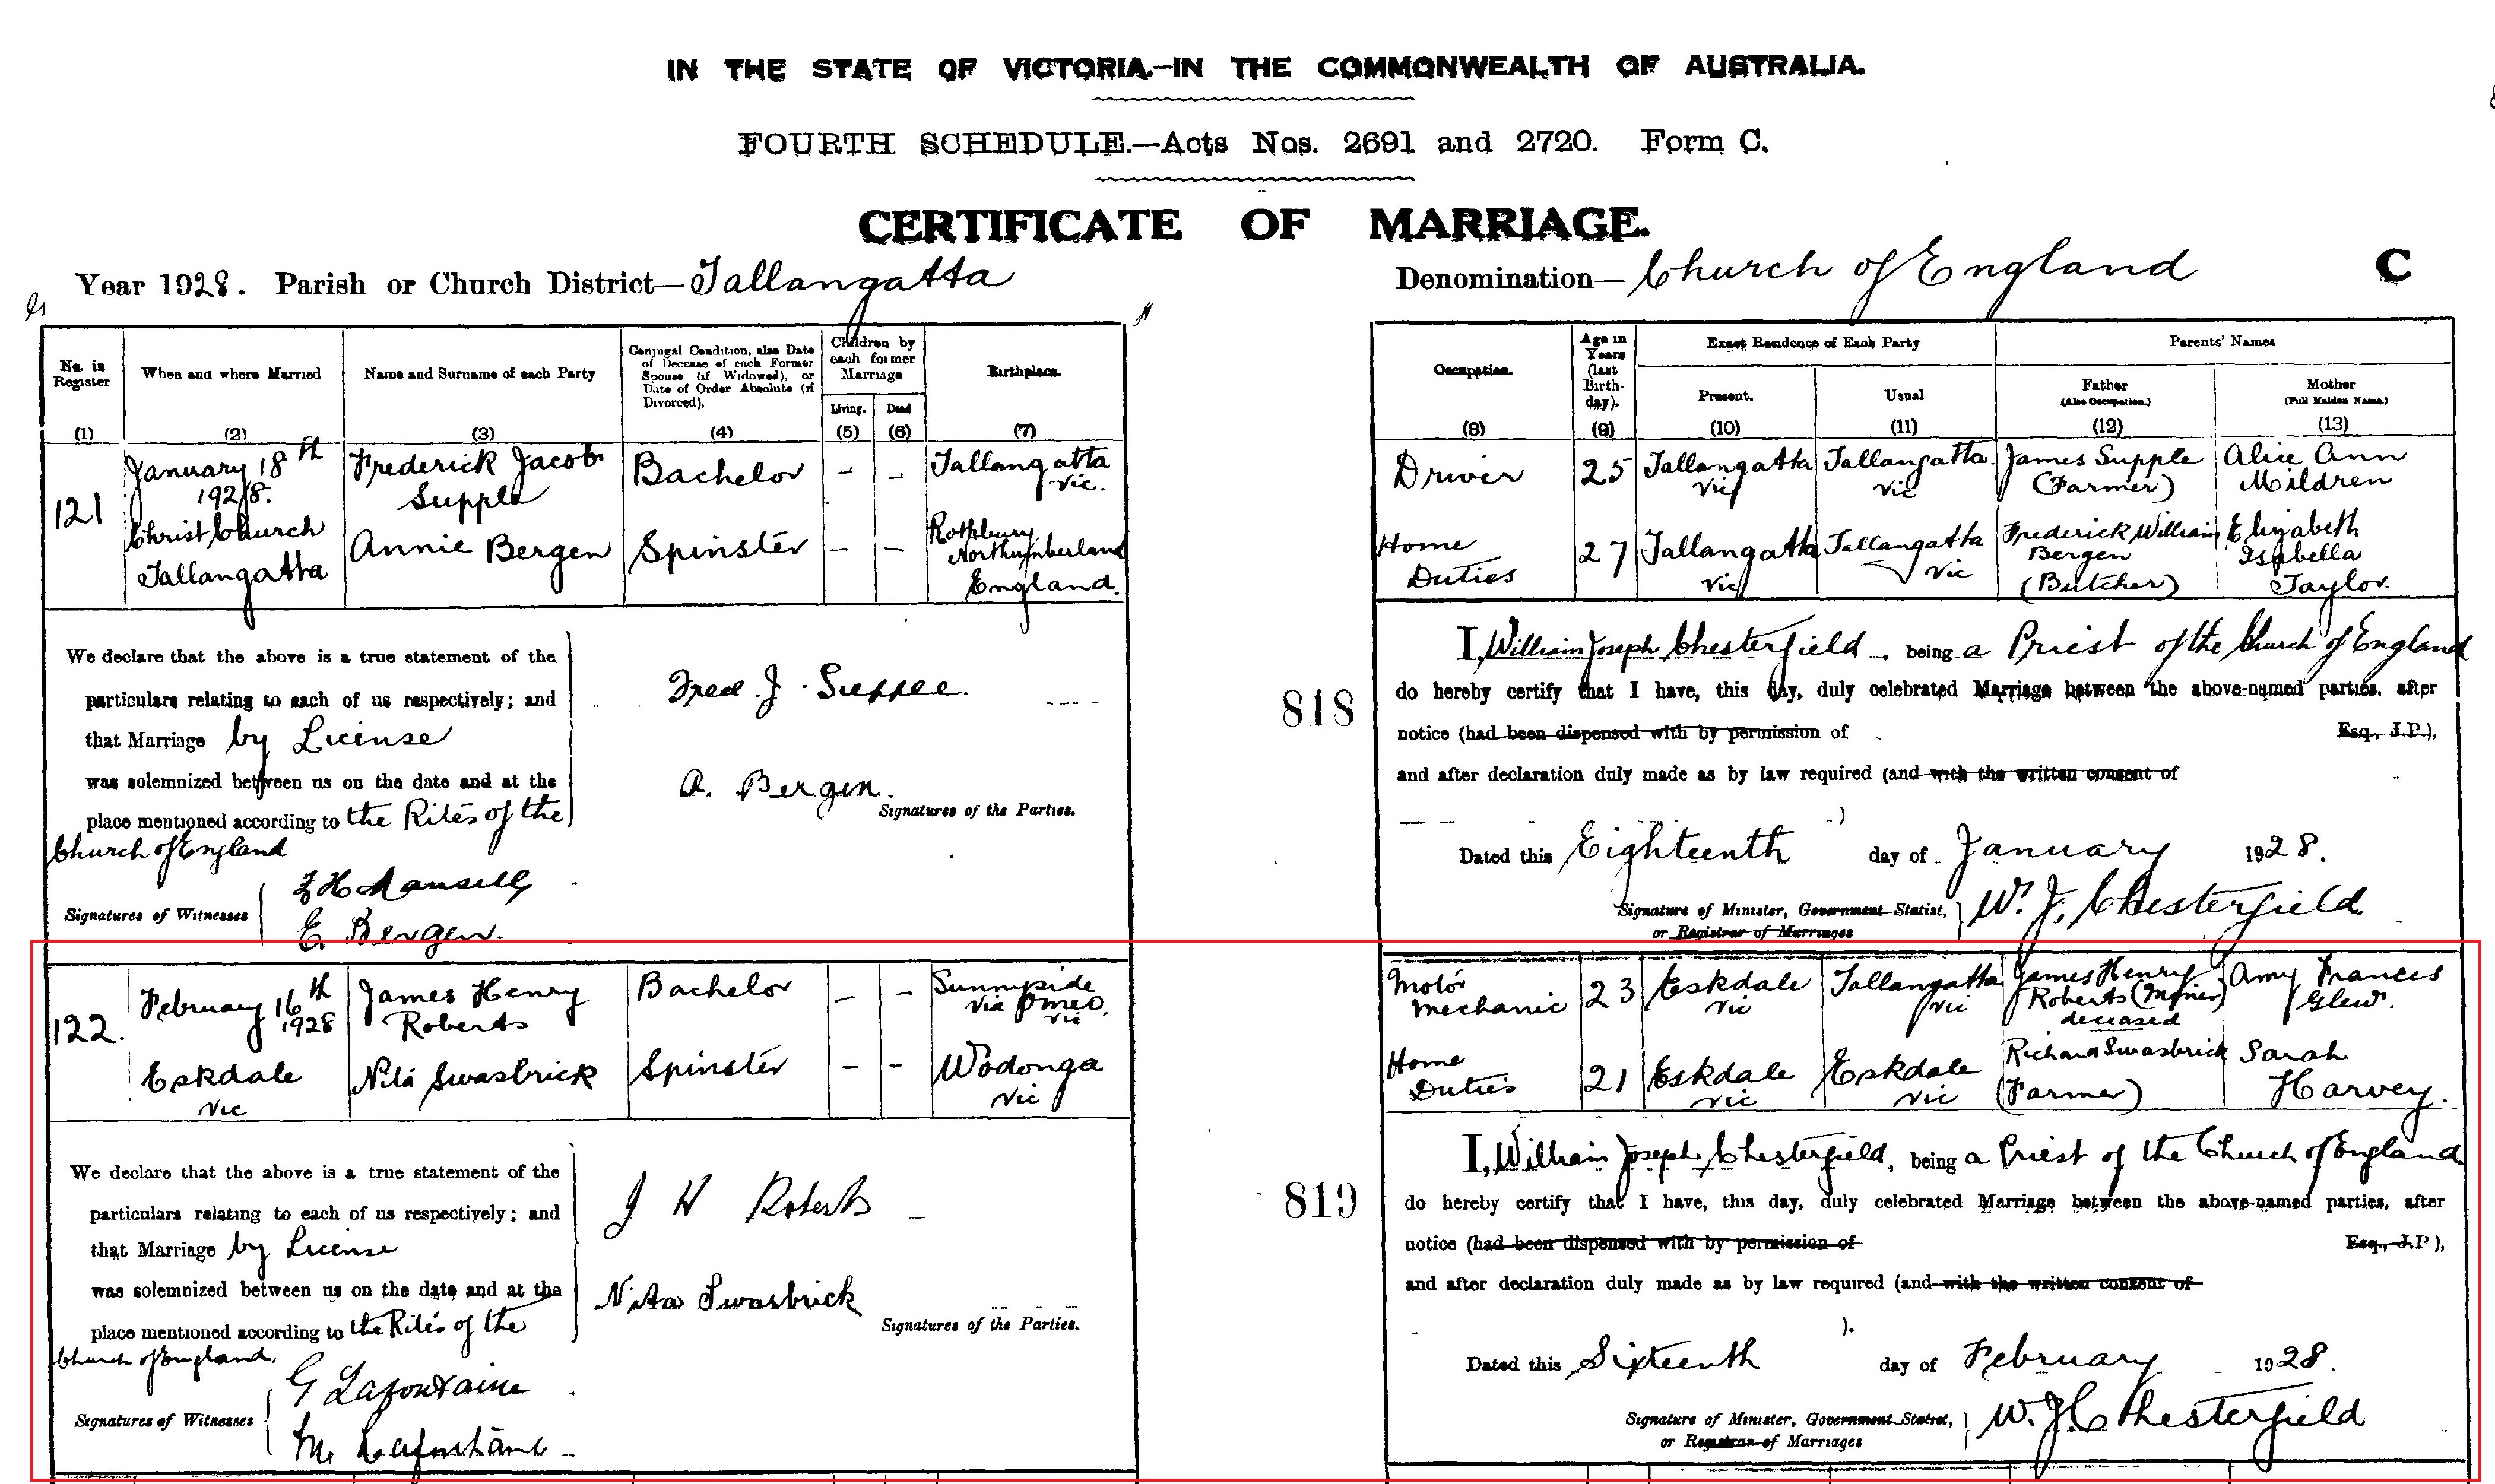 IN THE STATE OF VICTORIA.—IN THE COMMONWEALTH OF AUSTRALIA.
FOURTH SCHEDULE.—Acts Nos. 2691 and 2720. Form C.
CERTIFICATE OF MARRIAGE.
Year 1928. Parish or Church District—Tallangatta
Denomination—Church of England C
No. in Register
When and where Married
Name and Surname of each Party
Conjugal Condition, also Date of Decease of each Former Spouse (if Widowed), or Date of Order Absolute (if Divorced).
Children by each former Marriage
Living. Dead
Birthplace.
Occupation.
Age in Years (last Birth-day).
Exact Residence of Each Party
Present. Usual
Parents' Names
Father (Also Occupation.)
Mother (Full Maiden Name.)
(1) (2) (3) (4) (5) (6) (7) (8) (9) (10) (11) (12) (13)
121
January 18th
1928.
Christ Church
Tallangatta
Frederick Jacob
Supple
Bachelor - -
Tallangatta
Vic.
Driver 25
Tallangatta
Vic
Tallangatta
Vic
James Supple
(Farmer)
Alice Ann
Mildren
Annie Bergen
Spinster - -
Rothbury
Northumberland
England.
Home
Duties
27
Tallangatta
Vic
Tallangatta
Vic
Frederick William
Bergen
(Butcher)
Elizabeth
Isabella
Taylor.
We declare that the above is a true statement of the
particulars relating to each of us respectively; and
that Marriage by License
was solemnized between us on the date and at the
place mentioned according to the Rites of the
Church of England
Fred. J. Supple.
A. Bergen.
Signatures of the Parties.
Signatures of Witnesses
E. Bergen.
818
I, William Joseph Chesterfield, being a Priest of the Church of England
do hereby certify that I have, this day, duly celebrated Marriage between the above-named parties, after
notice (had been dispensed with by permission of Esq., J.P.),
and after declaration duly made as by law required (and with the written consent of
)
Dated this Eighteenth day of January 1928.
Signature of Minister, Government Statist,
or Registrar of Marriages
W. J. Chesterfield
122.
February 16th
1928
Eskdale
Vic
James Henry
Roberts
Bachelor - -
Sunnyside
via Omeo
Vic
Motor
Mechanic
23
Eskdale
Vic
Tallangatta
Vic
James Henry
Roberts (Miner)
deceased
Amy Frances
Glew.
Nita Swasbrick
Spinster - -
Wodonga
Vic
Home
Duties
21
Eskdale
Vic
Eskdale
Vic
Richard Swasbrick
(Farmer)
Sarah
Harvey.
We declare that the above is a true statement of the
particulars relating to each of us respectively; and
that Marriage by License
was solemnized between us on the date and at the
place mentioned according to the Rites of the
Church of England.
J H Roberts
Nita Swasbrick
Signatures of the Parties.
Signatures of Witnesses
G Lafontaine
M. Lafontaine
819
I, William Joseph Chesterfield, being a Priest of the Church of England
do hereby certify that I have, this day, duly celebrated Marriage between the above-named parties, after
notice (had been dispensed with by permission of Esq., J.P),
and after declaration duly made as by law required (and with the written consent of
).
Dated this Sixteenth day of February 1928.
Signature of Minister, Government Statist,
or Registrar of Marriages
W. J. Chesterfield